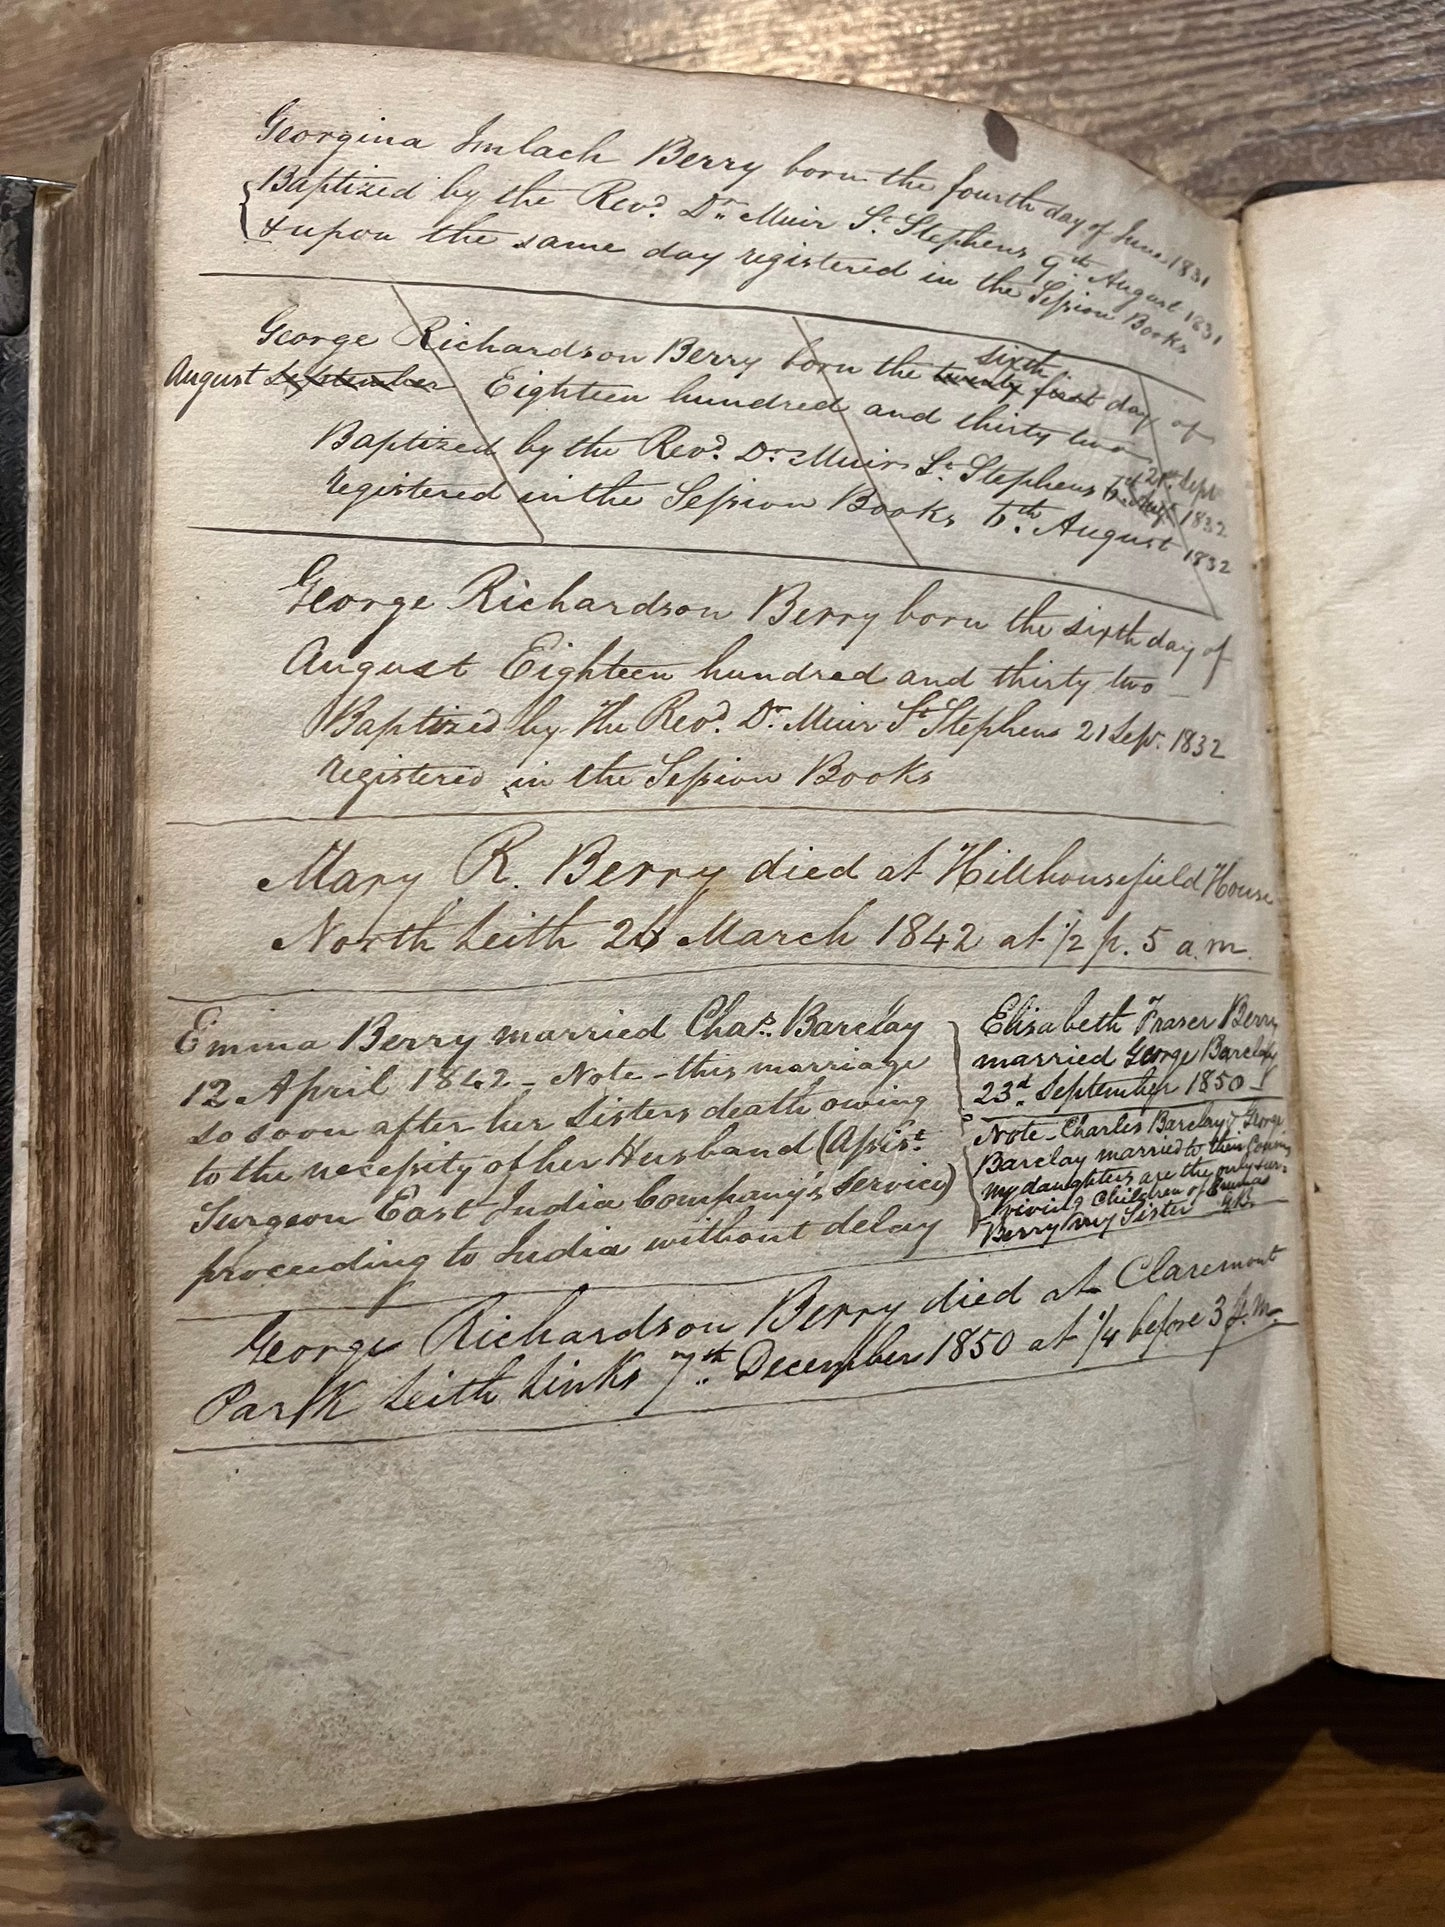 Georgina Imlach Berry born the fourth day of June 1831
Baptized by the Revd. Dr. Muir St. Stephens 9th. August 1831
& upon the same day registered in the Session Books
sixth
George Richardson Berry born the twenty first day of
August September Eighteen hundred and thirty two
21st. Sept
Baptized by the Revd. Dr. Muir St. Stephens 1832
registered in the Session Books 6th. August 1832
George Richardson Berry born the sixth day of
August Eighteen hundred and thirty two –
Baptized by The Revd. Dr. Muir St. Stephens 21 Sepr. 1832
registered in the Session Books
Mary R. Berry died at Hillhousefield House
North Leith 26 March 1842 at ½ p. 5 a.m.
Emma Berry married Chas. Barclay
12 April 1842 – Note – this marriage
so soon after her Sisters death owing
to the necessity of her Husband (Assist.
Surgeon East India Company's Service)
proceeding to India without delay
Elisabeth Fraser Berry
married George Barclay
23d. September 1850 –
Note – Charles Barclay & George
Barclay married to their Cousins
my daughters are the only sur-
viving Children of Emma
Berry my Sister
George Richardson Berry died at Claremont
Park Leith Links 7th. December 1850 at ¼ before 3 p.m.